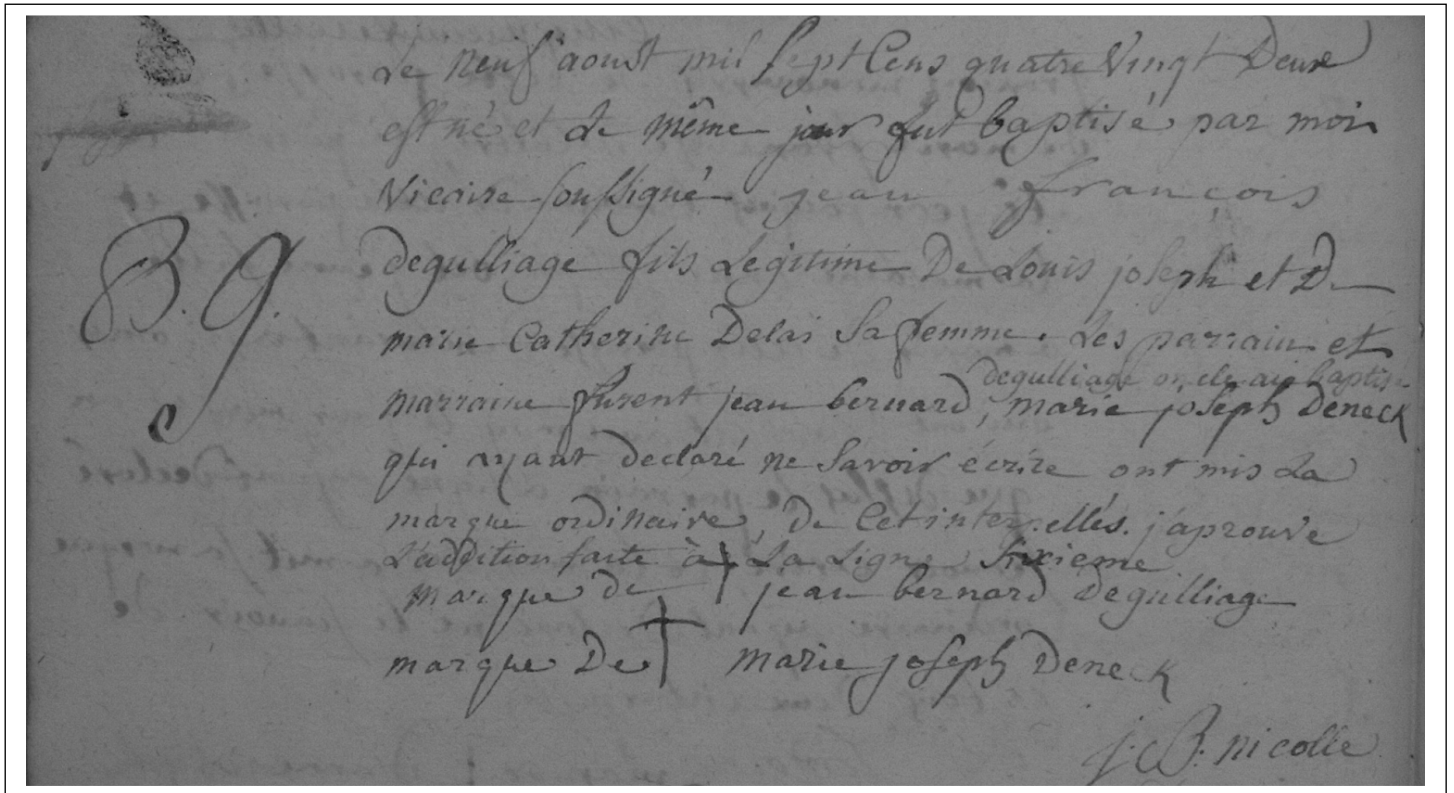 Le neuf aoust mil sept Cens quatre Vingt Deux
est né et le même jour fut baptisé par moi
Vicaire soussigné jean françois
B. 9.
degulliage fils Legitime De Louis joseph et De
marie Catherine Delai Sa femme. Les parrain et
degulliage oncle au baptisé
marraine furent jean bernard, marie joseph Deneck
qui ayant declaré ne Savoir écrire ont mis La
marque ordinaire, de Cet interpellés. j'aprouve
L'addition faite à La Ligne Sixieme
marque de † jean bernard Degulliage
marque De † marie joseph Deneck
j. B. nicolle